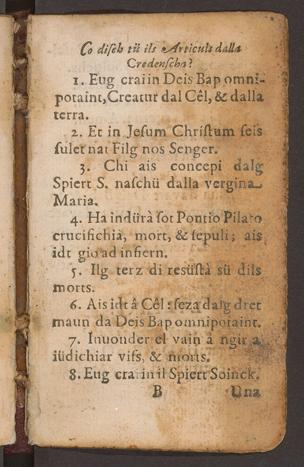 Co disch tü ils Articuls dalla
Credenscha?
1. Eug crai in Deis Bap omni-
potaint, Creatur dal Cêl, & dalla
terra.
2. Et in Jesum Christum seis
sulet nat Filg nos Senger.
3. Chi ais concepi dalg
Spiert S. naschü dalla vergina
Maria.
4. Ha indürà sot Pontio Pilato
crucifichià, mort, & sepuli; ais
idt gio ad infiern.
5. Ilg terz di resüstà sü dils
morts.
6. Ais idt â Cêl: seza dalg dret
maun da Deis Bap omnipotaint.
7. Inuonder el vain à ngir a
iüdichiar vifs, & morts.
8. Eug crai in il Spiert Soinck.
B Una